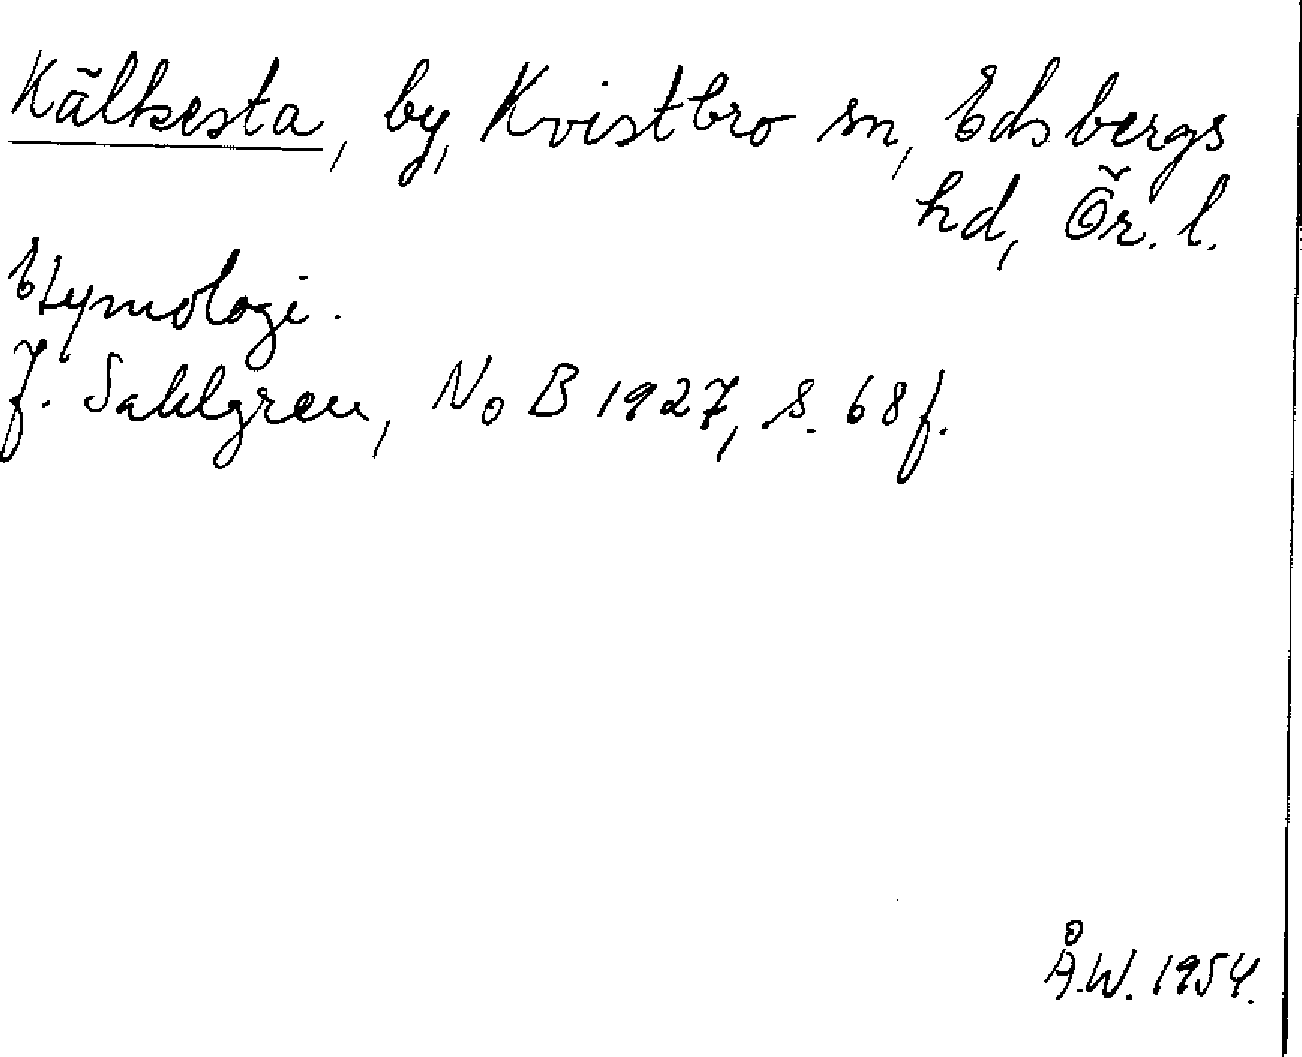 Kälkesta, by, Kvistbro sn, Edsbergs
hd, Ör. l.
Etymologi.
J. Sahlgren, NoB 1927, s. 68 f.
Å.W. 1954.